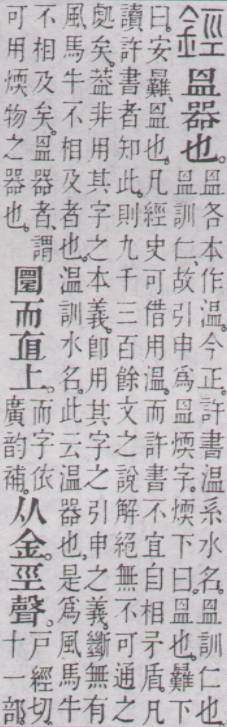 鋞
𥁕器也。
𥁕各本作溫。今正。許書溫系水名。𥁕訓仁也
𥁕訓仁、故引申爲𥁕煗字。煗下曰。𥁕也。㬮下
曰。安㬮、𥁕也。凡經史可借用溫。而許書不宜自相矛盾。凡
讀許書者知此。則九千三百餘文之說解絕無不可通之
處矣。葢非用其字之本義。卽用其字之引申之義。斷無有
風馬牛不相及者也。溫訓水名。此云溫器也。是爲風馬牛
不相及矣。𥁕器者、謂
可用煗物之器也。
圜而直上。
而字依
廣韵補。
从金。巠聲。
戶經切。
十一部。